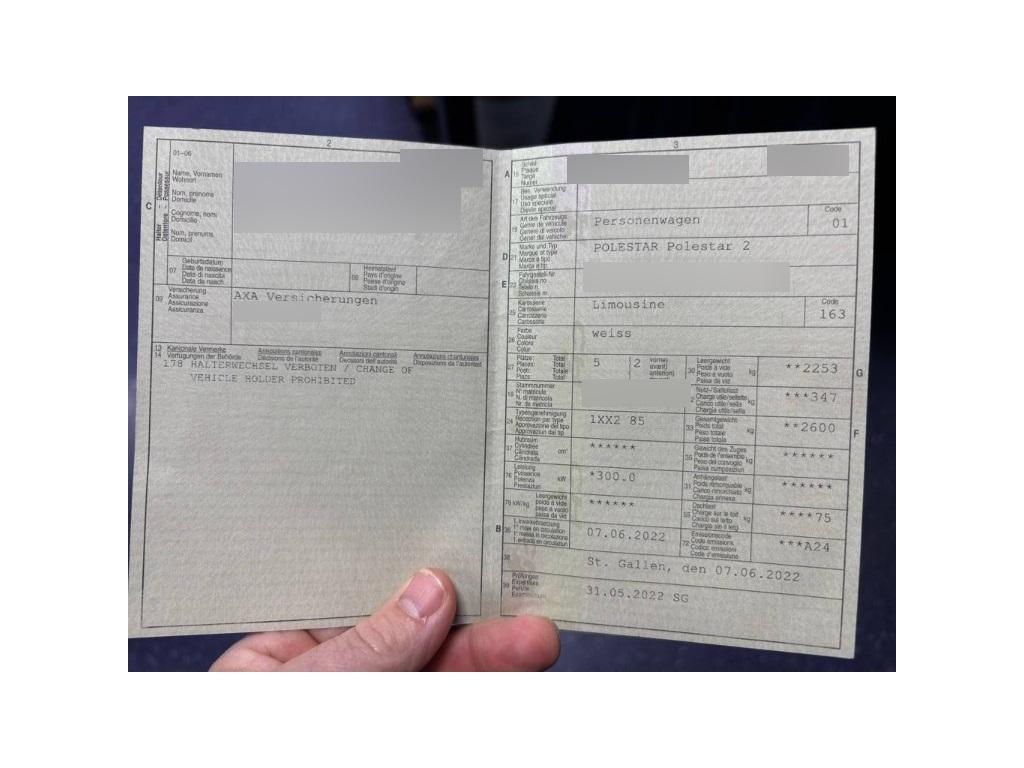 2
01–06
Name, Vornamen
Wohnort
Nom, prénoms
Domicile
Cognome, nomi
Domicilio
Num, prenums
Domicil
C
Halter - Détenteur
Detentore - Possessur
07
Geburtsdatum
Date de naissance
Data di nascita
Data da nasch.
08
Heimatstaat
Pays d'origine
Paese d'origine
Stadi d'origin
09
Versicherung
Assurance
Assicurazione
Assicuranza
AXA Versicherungen
13 Kantonale Vermerke Annotations cantonales Annotazioni cantonali Annotaziuns chantunalas
14 Verfügungen der Behörde Décisions de l'autorité Decisioni dell'autorità Disposiziuns da l'autoritad
178 HALTERWECHSEL VERBOTEN / CHANGE OF
VEHICLE HOLDER PROHIBITED
3
A
Schild
Plaque
Targa
Numer
17
Bes. Verwendung
Usage spécial
Uso speciale
Diever spezial
19
Art des Fahrzeugs
Genre de véhicule
Genere di veicolo
Gener dal vehichel
Personenwagen
Code
01
D
21
Marke und Typ
Marque et type
Marca e tipo
Marca e tip
POLESTAR Polestar 2
E
23
Fahrgestell-Nr.
Châssis no
Telaio n.
Schassis nr.
25
Karosserie
Carrosserie
Carrozzeria
Carossaria
Limousine
Code
163
26
Farbe
Couleur
Colore
Colur
weiss
27
Plätze: Total
Places: Total
Posti: Totale
Plazs: Total
5
2
vorne)
avant)
anteriori)
30
Leergewicht
Poids à vide
Peso a vuoto
Paisa da vid
kg
**2253
G
18
Stammnummer
N° matricule
N. di matricola
Nr. da matricla
Nutz-/Sattellast
Charge utile/sellette
Carico utile/sella
Chargia utila/sella
kg
***347
24
Typengenehmigung
Réception par type
Approvazione del tipo
Approvaziun dal tip
1XX2 85
33
Gesamtgewicht
Poids total
Peso totale
Paisa totala
kg
**2600
F
37
Hubraum
Cylindrée
Cilindrata
Cilindrada
cm³
******
35
Gewicht des Zuges
Poids de l'ensemble
Peso del convoglio
Paisa cumposiziun
kg
******
76
Leistung
Puissance
Potenza
Prestaziun
kW
*300.0
31
Anhängelast
Poids remorquable
Carico rimorchiato
Chargia annexa
kg
******
78 kW/kg
Leergewicht
poids à vide
peso a vuoto
paisa da vid
******
55
Dachlast
Charge sur le toit
Carico sul tetto
Chargia sin il tetg
kg
****75
B
36
1. Inverkehrsetzung
1re mise en circulation
1a messa in circolazione
1. entrada en circulaziun
07.06.2022
72
Emissionscode
Code émissions
Codice emissioni
Code d'emissiuns
***A24
38
St. Gallen, den 07.06.2022
39
Prüfungen
Expertises
Perizie
31.05.2022 SG